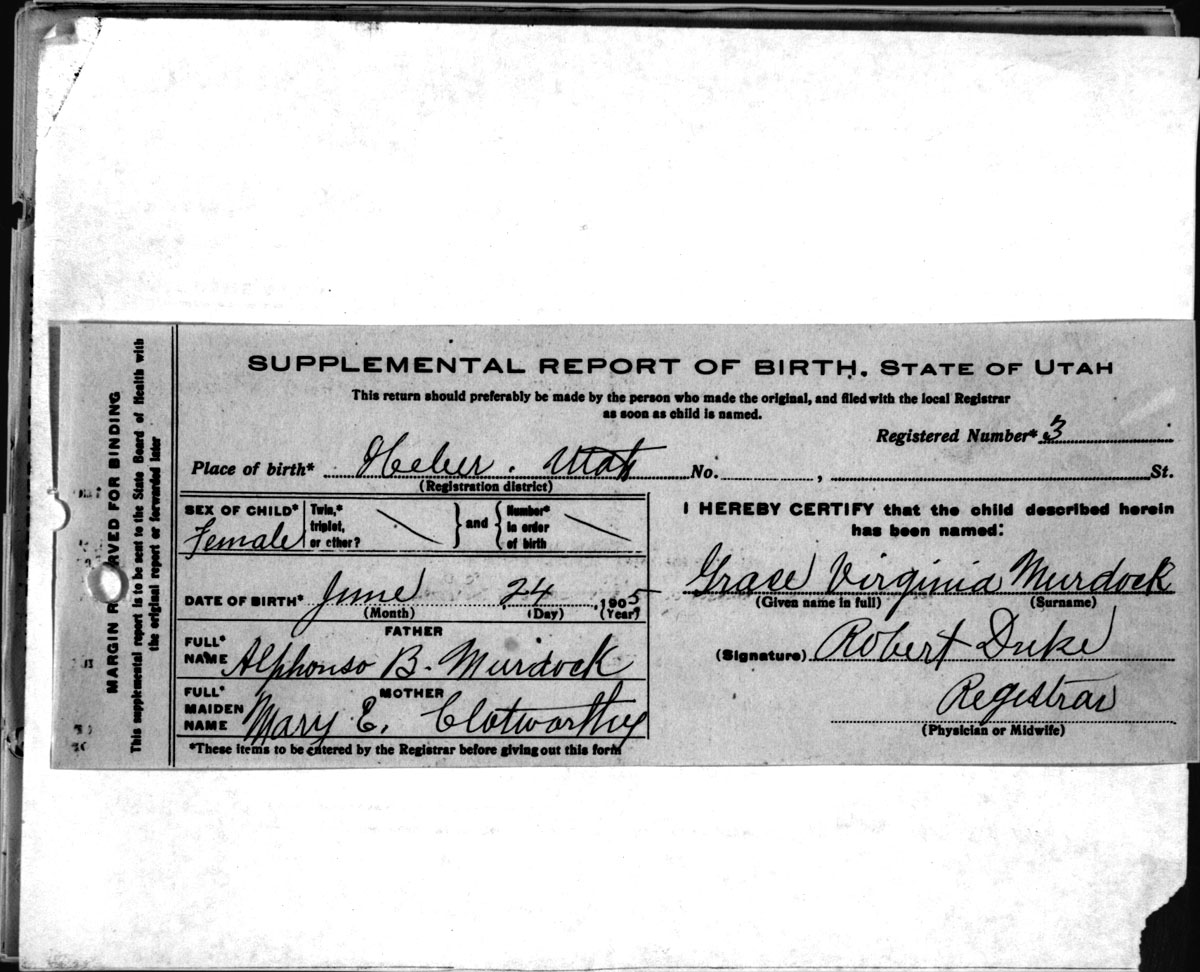 SUPPLEMENTAL REPORT OF BIRTH. STATE OF UTAH
This return should preferably be made by the person who made the original, and filed with the local Registrar
as soon as child is named.
Registered Number* 3
Place of birth* Heber. Utah No. , St.
(Registration district)
SEX OF CHILD* Female
Twin,*
triplet,
or other?
and
Number*
in order
of birth
DATE OF BIRTH* June 24, 1905
(Month) (Day) (Year)
FATHER
FULL*
NAME Alphonso B. Murdock
MOTHER
FULL*
MAIDEN
NAME Mary E. Clotworthy
*These items to be entered by the Registrar before giving out this form
I HEREBY CERTIFY that the child described herein
has been named:
Grace Virginia Murdock
(Given name in full) (Surname)
(Signature) Robert Duke
Registrar
(Physician or Midwife)
MARGIN R RVED FOR BINDING
This supplemental report is to be sent to the State Board of Health with
the original report or forwarded later